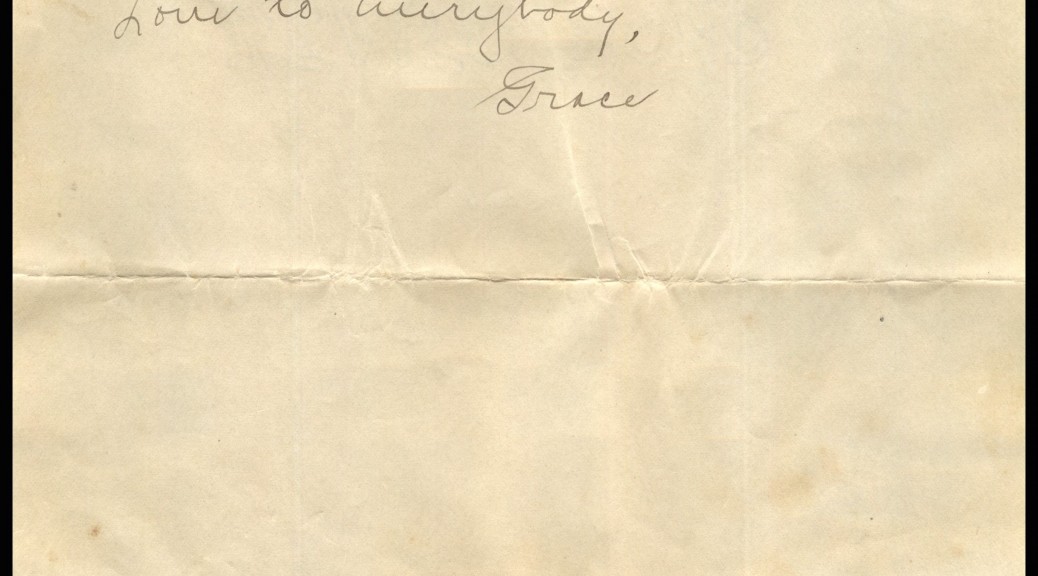 Love to everybody,
Grace